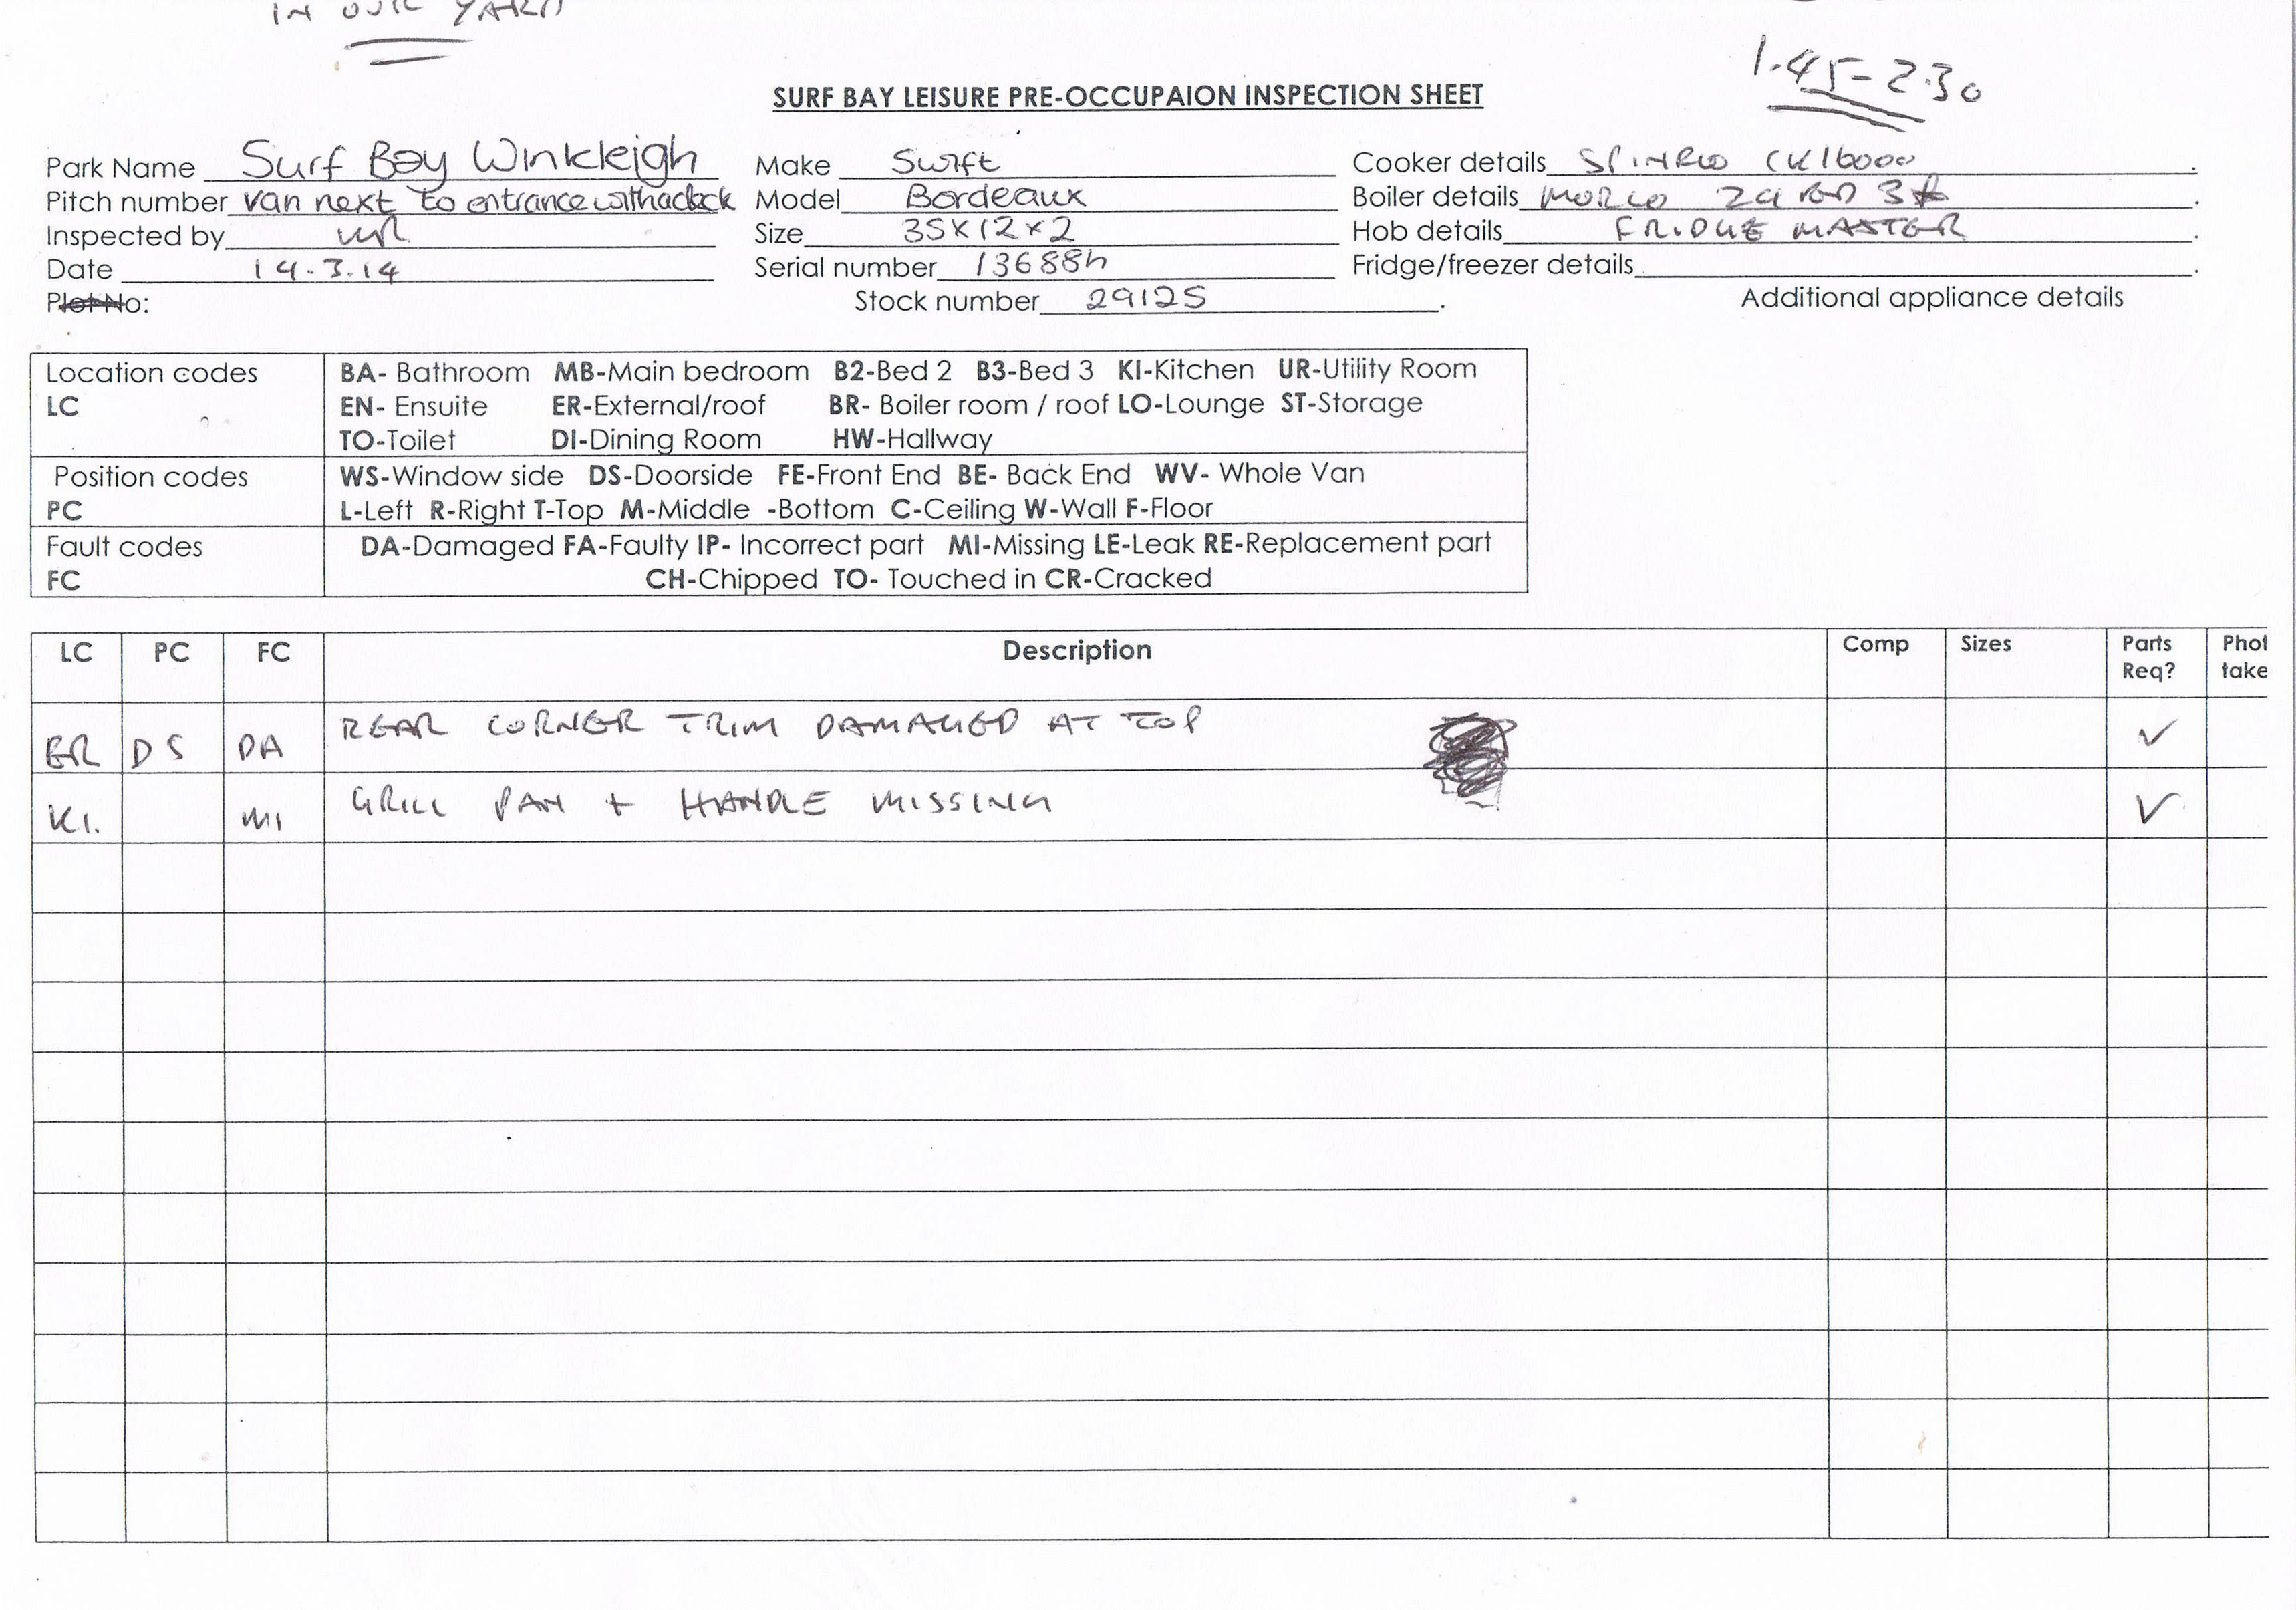 IN OUR YARD
1.45-2.30
SURF BAY LEISURE PRE-OCCUPAION INSPECTION SHEET
Park Name Surf Bay Winkleigh Make Swift Cooker details SPINFLO CK16000
Pitch number van next to entrance with a deck Model Bordeaux Boiler details MORCO
Inspected by Size 35x12x2 Hob details FRIDGE MASTER
Date 14.3.14 Serial number 13688h Fridge/freezer details
Plot No: Stock number 29125 Additional appliance details
Location codes BA- Bathroom MB-Main bedroom B2-Bed 2 B3-Bed 3 KI-Kitchen UR-Utility Room
LC EN- Ensuite ER-External/roof BR- Boiler room / roof LO-Lounge ST-Storage
TO-Toilet DI-Dining Room HW-Hallway
Position codes WS-Window side DS-Doorside FE-Front End BE- Back End WV- Whole Van
PC L-Left R-Right T-Top M-Middle -Bottom C-Ceiling W-Wall F-Floor
Fault codes DA-Damaged FA-Faulty IP- Incorrect part MI-Missing LE-Leak RE-Replacement part
FC CH-Chipped TO- Touched in CR-Cracked
LC PC FC Description Comp Sizes Parts Req? Phot take
ER DS DA REAR CORNER TRIM DAMAGED AT TOP ✓
KI. MI GRILL PAN + HANDLE MISSING ✓